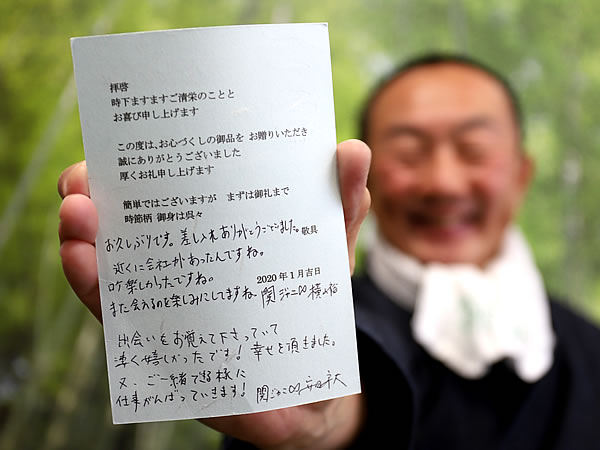 拝啓
時下ますますご清栄のことと
お喜び申し上げます
この度は、お心づくしの御品を お贈りいただき
誠にありがとうございました
厚くお礼申し上げます
簡単ではございますが まずは御礼まで
時節柄 御身は呉々
敬具
お久しぶりです。差し入れありがとうございました。
近くに会社があったんですね。
2020年1月吉日
また会えるのを楽しみにしてますね。 関ジャニ∞ 横山裕
出会いをお覚えて下さっていて
凄く嬉しかったです！幸せを頂きました。
又、ご一緒できる様に
仕事がんばっていきます！ 関ジャニ∞ 安田章大